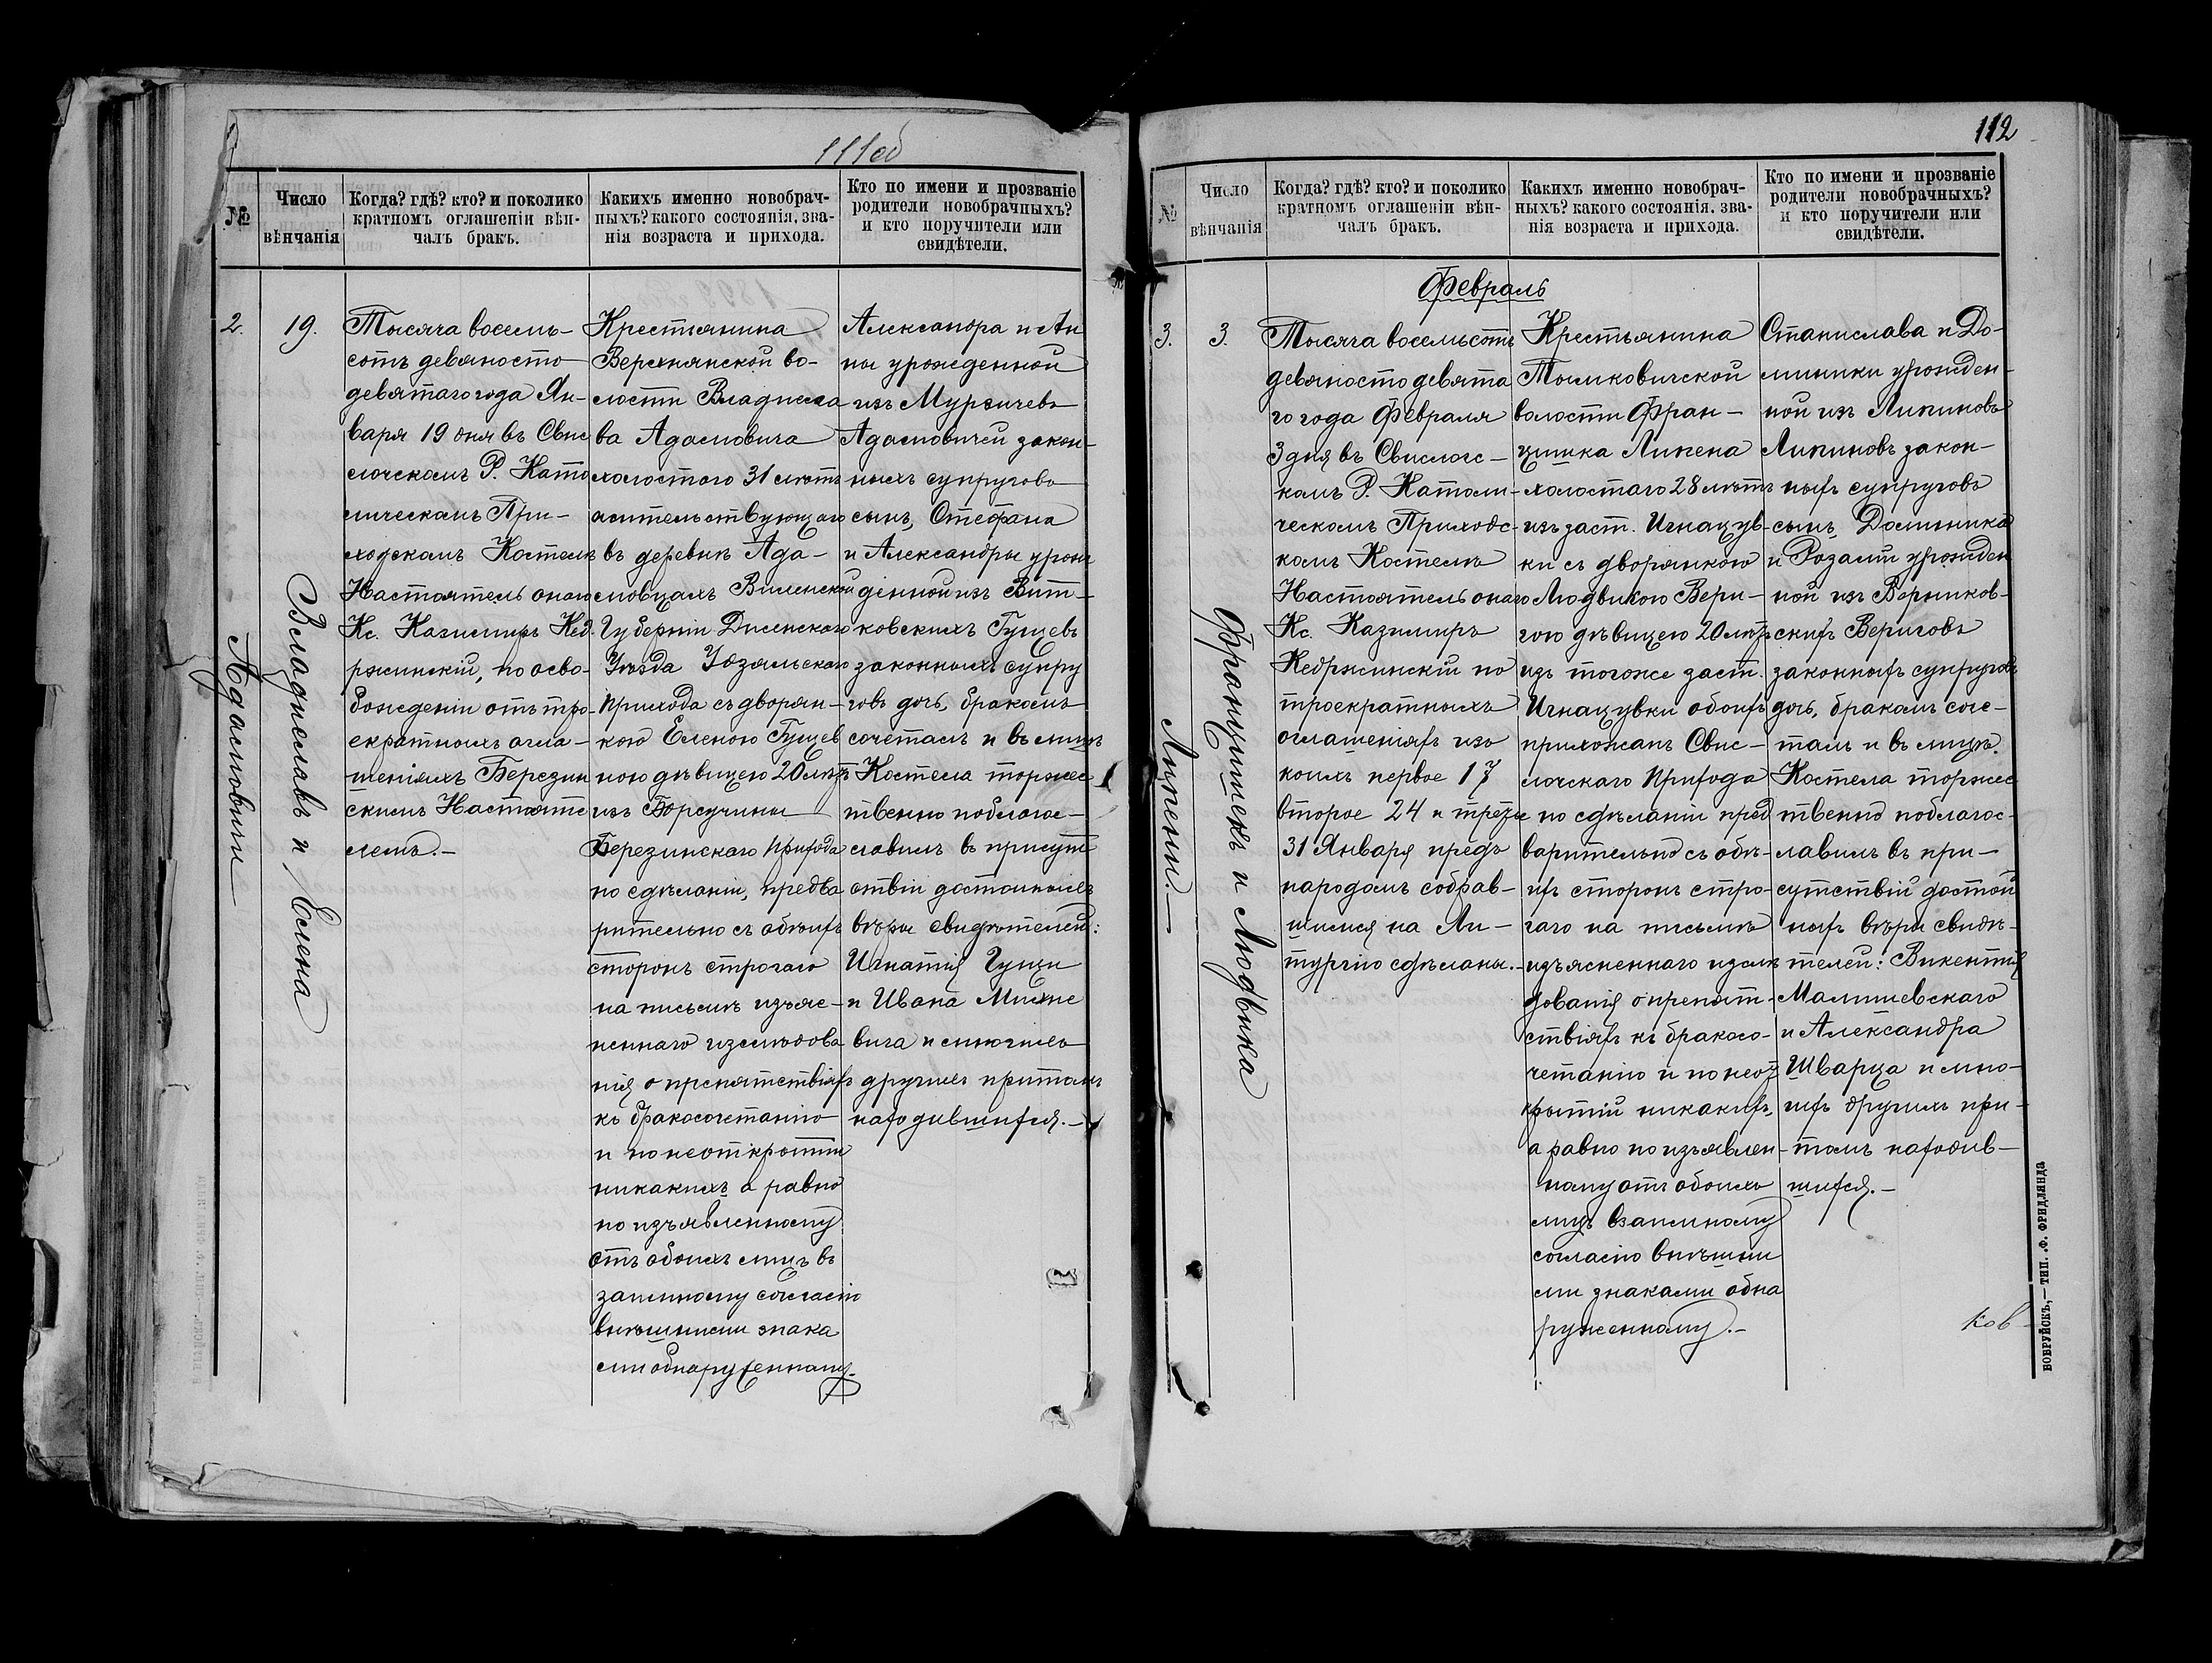 111об
№
Число
вѣнчанія
Когда? гдѣ? кто? и поколико
кратномъ оглашеніи вѣн-
чалъ бракъ.
Какихъ именно новобрач-
ныхъ? какого состоянія, зва-
нія возраста и прихода.
Кто по имени и прозваніе
родители новобрачныхъ?
и кто поручители или
свидѣтели.
2.
19.
Владиславъ и Елена
Адамовичи
Тысяча восемь-
сотъ девяносто
девятаго года Ян-
варя 19 дня въ Свис
лочскомъ Р. Като
лическомъ При-
ходскомъ Костелѣ
Настоятель онаго
Кс. Казимиръ Кед-
ржинскій, по осво-
божденіи отъ тро-
екратныхъ огла-
шеніяхъ Березин
скимъ Настояте
лемъ.-
Крестьянина
Верхнянской во-
лости Владисла
ва Адамовича
холостого 31 лѣтъ
жительствующаго
въ деревнѣ Ада-
мовцахъ Виленской
Губерніи Дисенскаго
Уѣзда Удзяльскаго
прихода съ дворян-
кою Еленою Гущев
ною дѣвицею 20 лѣтъ
изъ Борсучины
Березинскаго прихода
по сдѣланіи, предва
рительно съ обѣихъ
сторонъ строгаго
на письмѣ изъяс-
неннаго изслѣдова
нія о препятствіяхъ
къ бракосочетанію
и по неоткрытіи
никакихъ а равно
по изъявленному
отъ обоихъ лицъ в
заимному согласію
внѣшними знака
ми обнаруженному.
Александра и Ан
ны урожденной
изъ Мурзичевъ
Адамовичей закон-
ныхъ супруговъ
сынъ, Стефана
и Александры урож
денной изъ Вит-
ковскихъ Гущевъ
законныхъ супру
говъ дочь, бракомъ
сочеталъ и въ лицѣ
Костела торжес
твенно поблагос-
ловилъ въ присут
ствіи достойныхъ
вѣры свидѣтелей:
Игнатія Гущи
и Ивана Михне
вича и многихъ
другихъ при томъ
находившихся.-
112
№
Число
вѣнчанія
Когда? гдѣ? кто? и поколико
кратномъ оглашеніи вѣн-
чалъ бракъ.
Какихъ именно новобрач-
ныхъ? какого состоянія, зва-
нія возраста и прихода.
Кто по имени и прозваніе
родители новобрачныхъ?
и кто поручители или
свидѣтели.
Февраль
3.
3.
Францишекъ и Людвика
Липени.-
Тысяча восемьсотъ
девяносто девята
го года Февраля
3 дня въ Свислочс-
комъ Р. Католи-
ческомъ Приходс-
комъ Костелѣ
Настоятель онаго
Кс. Казимиръ
Кедржинскій по
троекратныхъ
оглашеніяхъ изъ
коихъ первое 17
второе 24 и третье
31 Января предъ
народомъ собрав-
шимся на Ли-
тургію сдѣланы.-
Крестьянина
волости Фран-
цишка Липеня
холостаго 28 лѣтъ
изъ заст. Игнацув-
ки съ дворянкою
Людвикою Вери-
гою дѣвицею 20 лѣтъ
изъ тогоже заст.
Игнацувки обоихъ
прихожанъ Свис-
лочскаго Прихода
по сдѣланіи пред
варительно съ обѣ-
ихъ сторонъ стро-
гаго на письмѣ
изъясненнаго изслѣ
дованія о препят-
ствіяхъ къ бракосо-
четанію и по неот
крытіи никакихъ,
а равно по изъявлен-
ному отъ обоихъ
лицъ взаимному
согласію внѣшни
ми знаками обна
руженному.-
Станислава и До-
миники урожден-
ной изъ Липиновъ
Липиновъ закон-
ныхъ супруговъ
сынъ, Доминика
и Розаліи урожден
ной изъ
скихъ Вериговъ
законныхъ супруговъ
дочь, бракомъ соче-
талъ и въ лицѣ
Костела торжес
твенно поблагос-
лавилъ въ при-
сутствіи достой
ныхъ вѣры свидѣ-
телей: Викентія
Малишевскаго
и Александра
Шварца и мно-
гихъ другихъ при-
томъ находив-
шихся.-
ков-
БОБРУЙСКЪ,—ТИП. Ф. ФРИДЛЯНДА